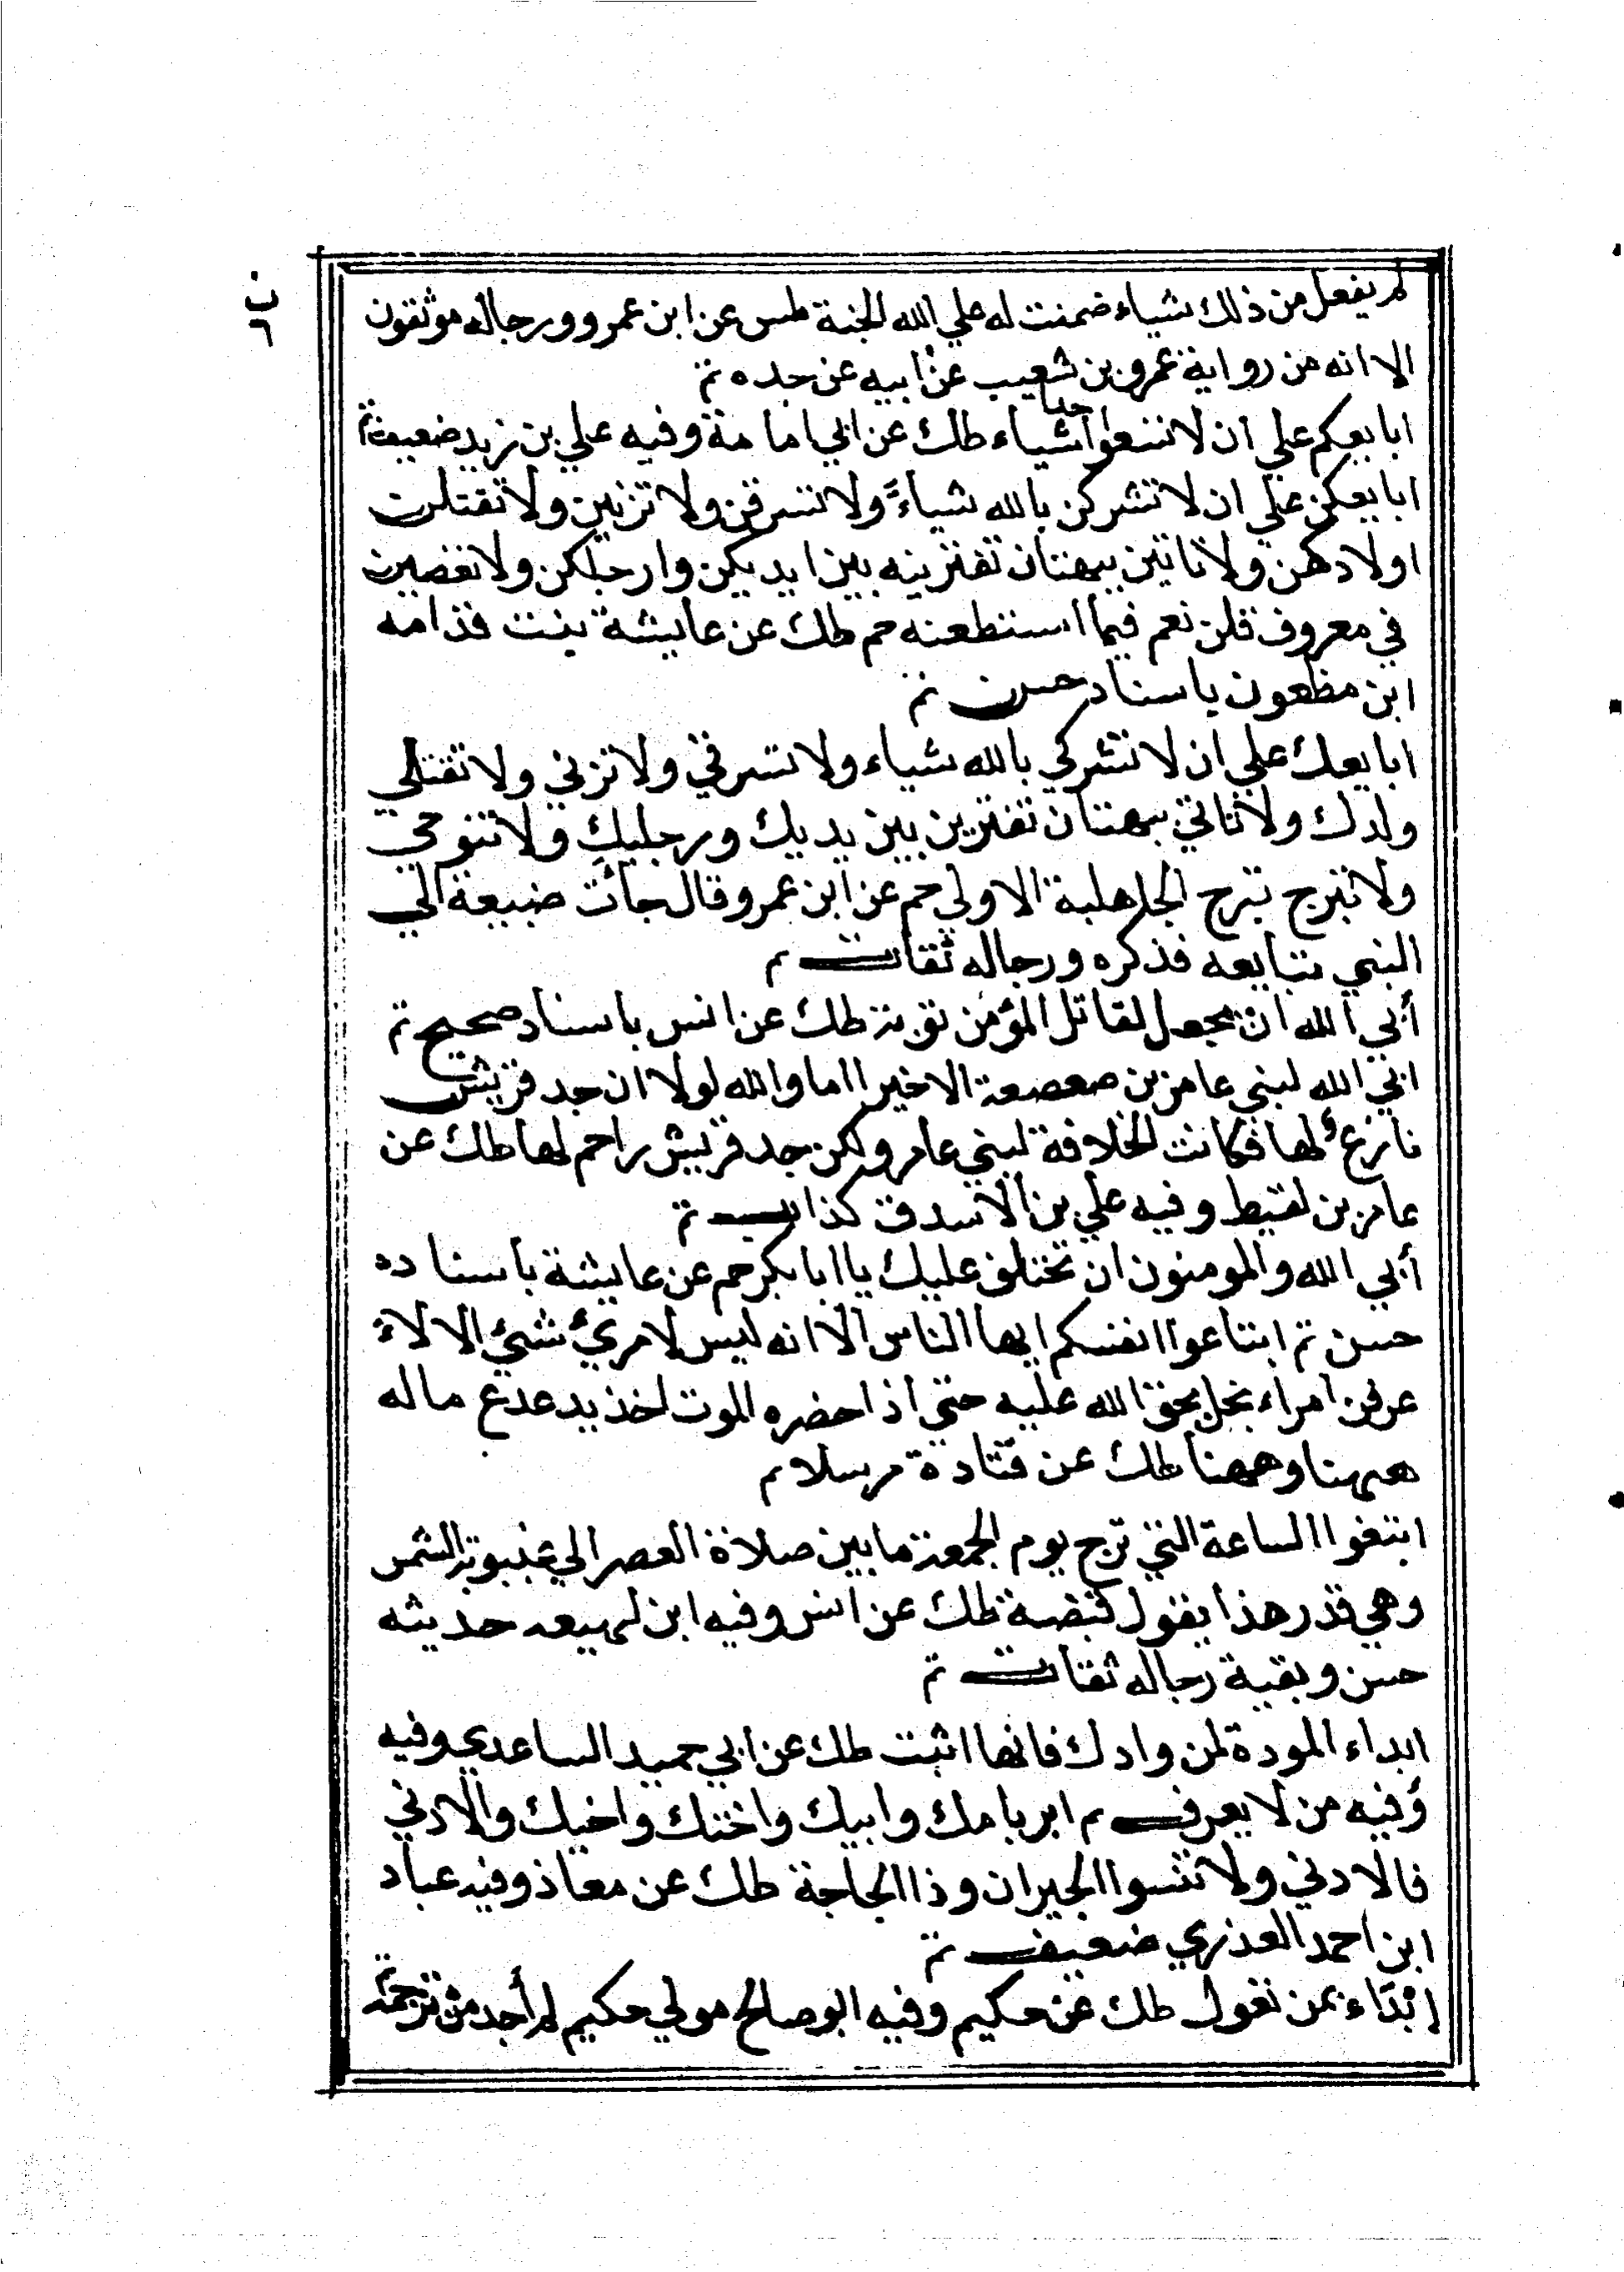 لم يفعل من ذلك شياء ضمنت له علي الله الجنة طس عن ابن عمرو ورجاله موثقون
الا انه من رواية عمرو بن شعيب عن ابيه عن جده تم
ابايعكم علي ان لا شياء طك عن ابي امامة وفيه علي بن زيد ضعيف تم
ابايعكن علي ان لا تشركن بالله شياءً ولا تسرقن ولا تزنين ولا تقتلن
اولادكن ولا تاتين ببهتان تفترينه بين ايديكن وارجلكن ولا تعصين
في معروف قلن نعم فيما استطعنه حم طك عن عايشة بنت قذامه
ابن مظعون باسناد حسن تم
ابايعك علي ان لا تشركي بالله شياء ولا تسرقي ولا تزني ولا تقتلي
ولدك ولا تاتي ببهتان تفترين بين يديك ورجليك ولا تنوحي
ولا تبرج تبرج الجاهلية الاولي حم عن ابن عمرو قال جأت ضبيعة الي
النبي تبايعه فذكره ورجاله ثقات م
أبي الله ان يجعل لقاتل المؤمن توبة طك عن انس باسناد صحيح تم
ابي الله لبني عامر بن صعصعة الا خيرا اما والله لولا ان جد قريش
نازع لها فكانت الخلافة لبني عامر ولكن جد قريش زاحم لها طك عن
عامر بن لقيط وفيه علي بن الاسدق كذاب تم
أبي الله والمومنون ان تختلف عليك يا ابا بكر حم عن عايشة باسناده
حسن تم ابتاعوا انفسكم ايها الناس الا انه ليس لامرئ شئ الا لاء
عرفن امراء بخل بحق الله عليه حتي اذا حضره الموت اخذ يدعدع ماله
ههنا وههنا طك عن قتادة مرسلا م
ابتغوا الساعة التي ترج يوم الجمعة ما بين صلاة العصر الي غيبوبة الشمس
وهي قدر هذا يقول قبضة طك عن انس وفيه ابن لهيعه حديثه
حسن وبقية رجاله ثقات تم
ابداء المودة لمن وادك فانها اثبت طك عن ابي حميد الساعدي وفيه
وفيه من لا يعرف م ابر بامك وابيك واختك واخيك والادني
فالادني ولا تنسوا الجيران وذا الحاجة طك عن معاذ وفيه عباد
ابن احمد العذري ضعيف تم
إبْدَاء بمن تعول طك عن حكيم وفيه ابو صالح مولي حكيم لم أجد من ترجمه